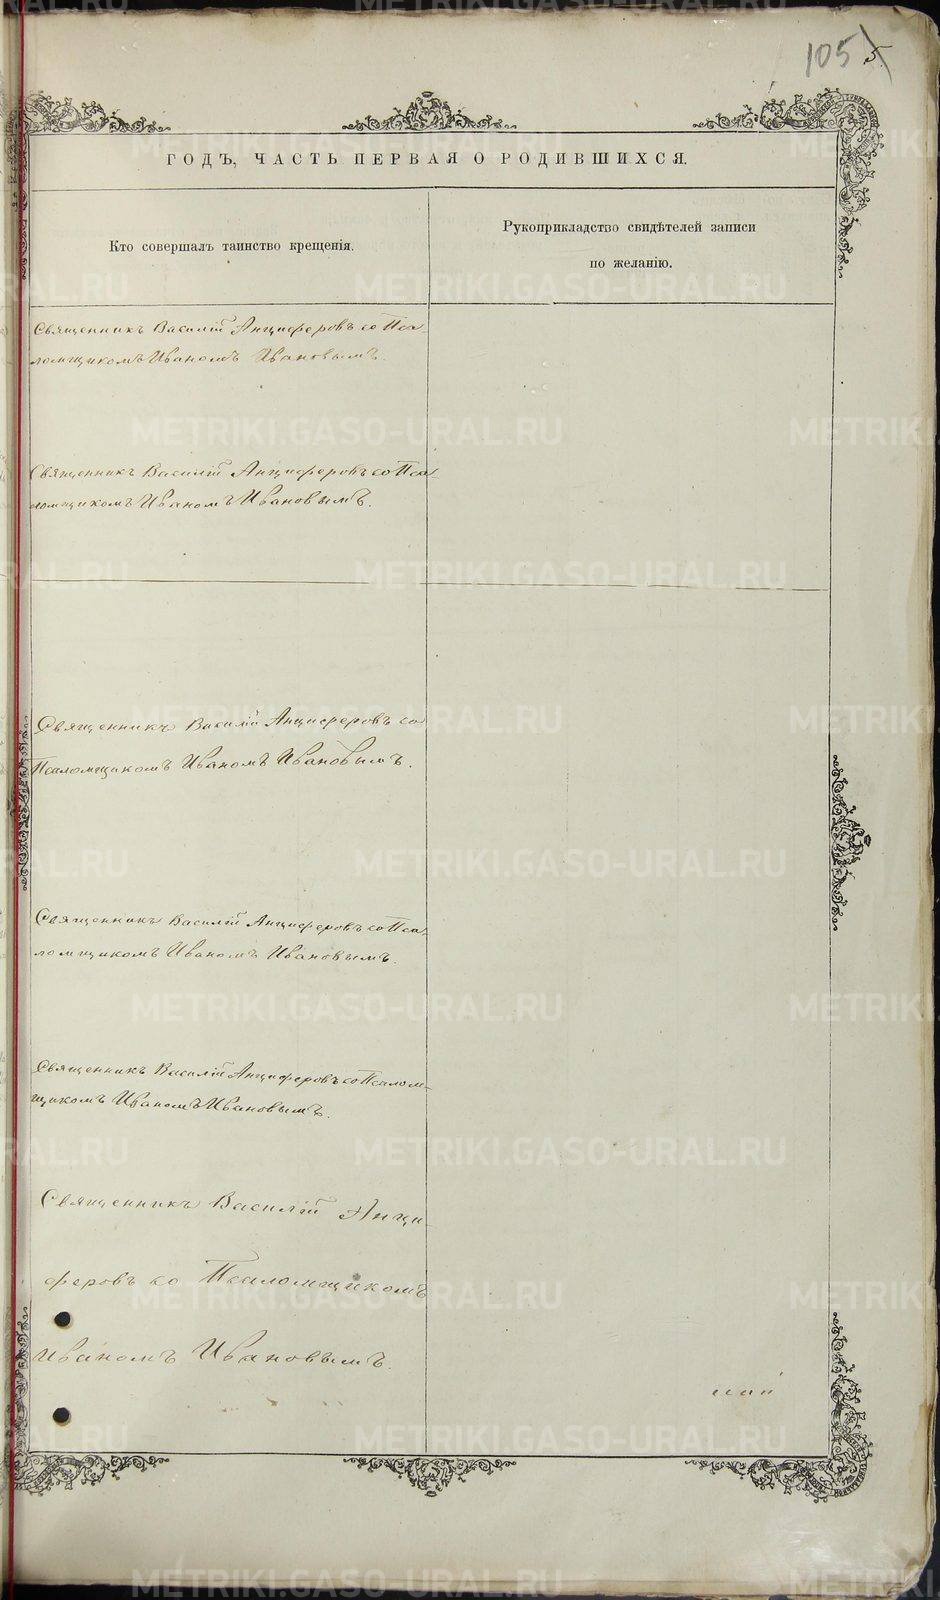 105 5.
ГОДЪ, ЧАСТЬ ПЕРВАЯ О РОДИВШИХСЯ.
Кто совершалъ таинство крещенія.
Рукоприкладство свидѣтелей записи
по желанію.
Священникъ Василій Анциферовъ со Пса-
ломщикомъ Иваномъ Ивановымъ.
Священникъ Василій Анциферовъ со Пса-
ломщикомъ Иваномъ Ивановымъ.
Священникъ Василій Анциферовъ со
Псаломщикомъ Иваномъ Ивановымъ.
Священникъ Василій Анциферовъ со Пса-
ломщикомъ Иваномъ Ивановымъ.
Священникъ Василій Анциферовъ со Псалом-
щикомъ Иваномъ Ивановымъ.
Священникъ Василій Анци-
феровъ со Псаломщикомъ
Иваномъ Ивановымъ.
METRIKI.GASO-URAL.RU